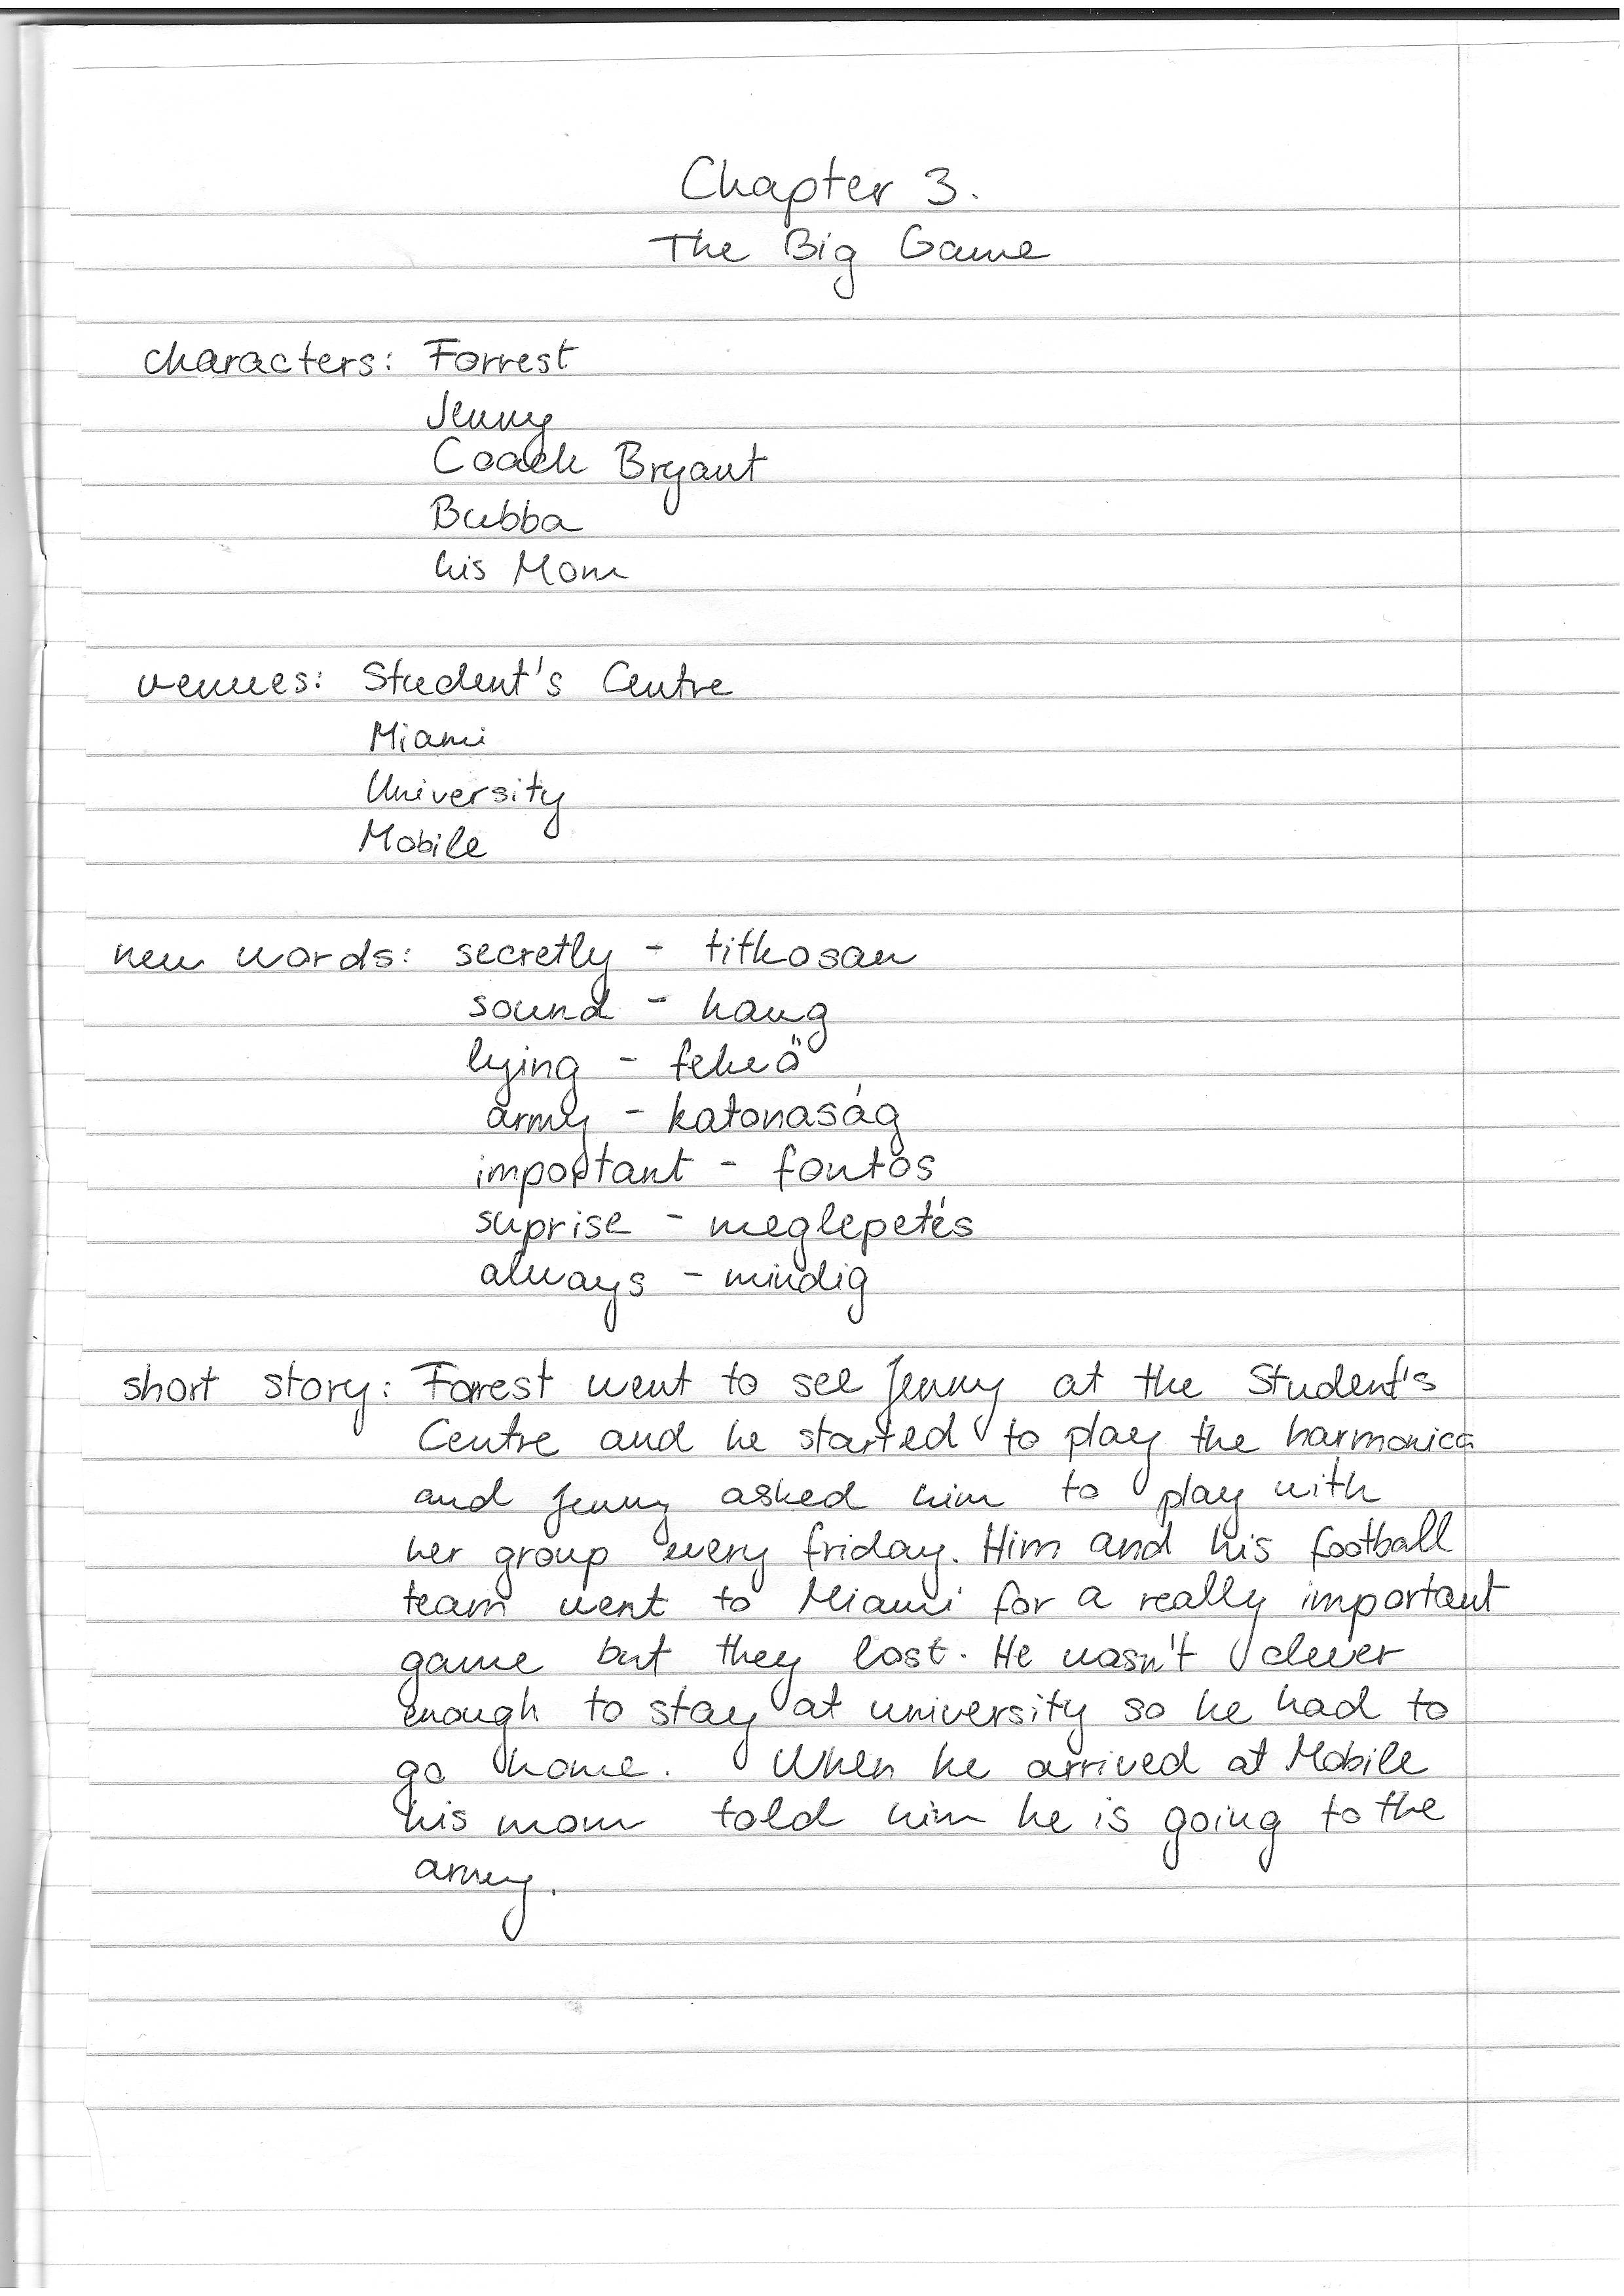 Chapter 3.
The Big Game
characters: Forrest
Jenny
Coach Bryant
Bubba
his Mom
venues: Student's Centre
Miami
University
Mobile
new words: secretly - titkosan
sound - hang
lying - fekvő
army - katonaság
important - fontos
suprise - meglepetés
always - mindig
short story: Forrest went to see Jenny at the Student's
Centre and he started to play the harmonica
and Jenny asked him to play with
her group every friday. Him and his football
team went to Miami for a really important
game but they lost. He wasn't clever
enough to stay at university so he had to
go home. When he arrived at Mobile
his mom told him he is going to the
army.